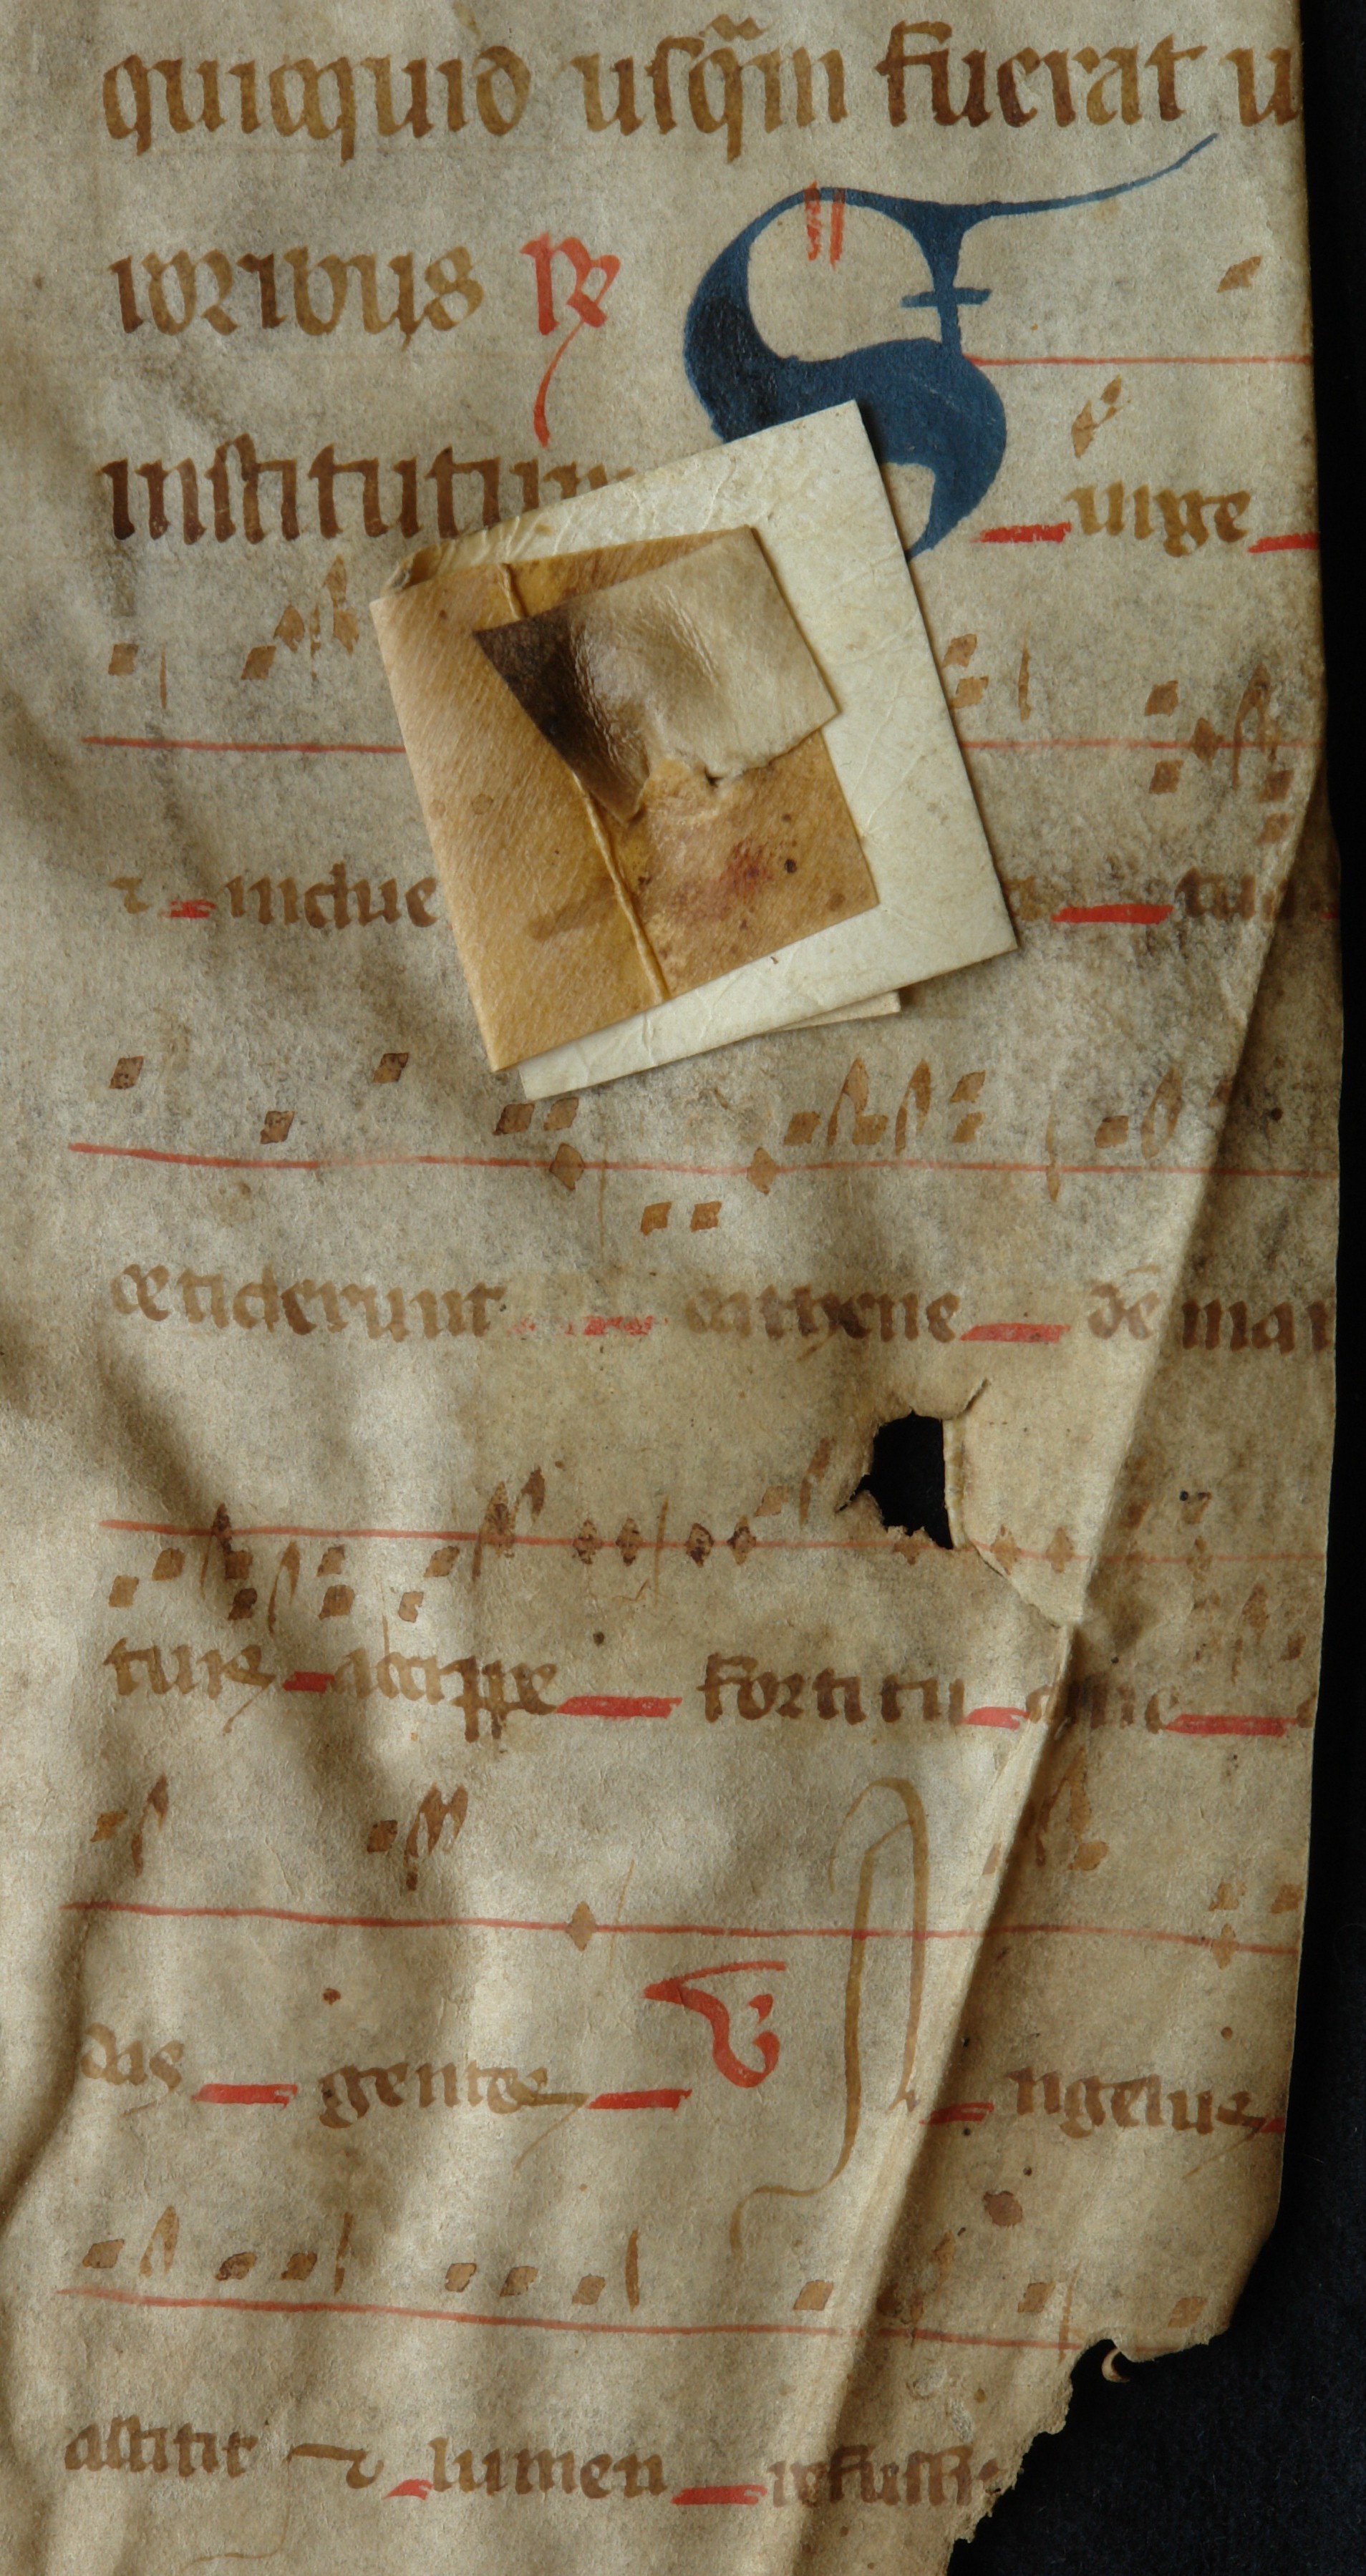 quicquid usq̃m fuerat u
ioribus ℟ S
institutum urge
⁊ indue
ceciderunt cathene de man
ture accipe fortitu dine
das gentes V A ngelus
astitit ⁊ lumen refulsit